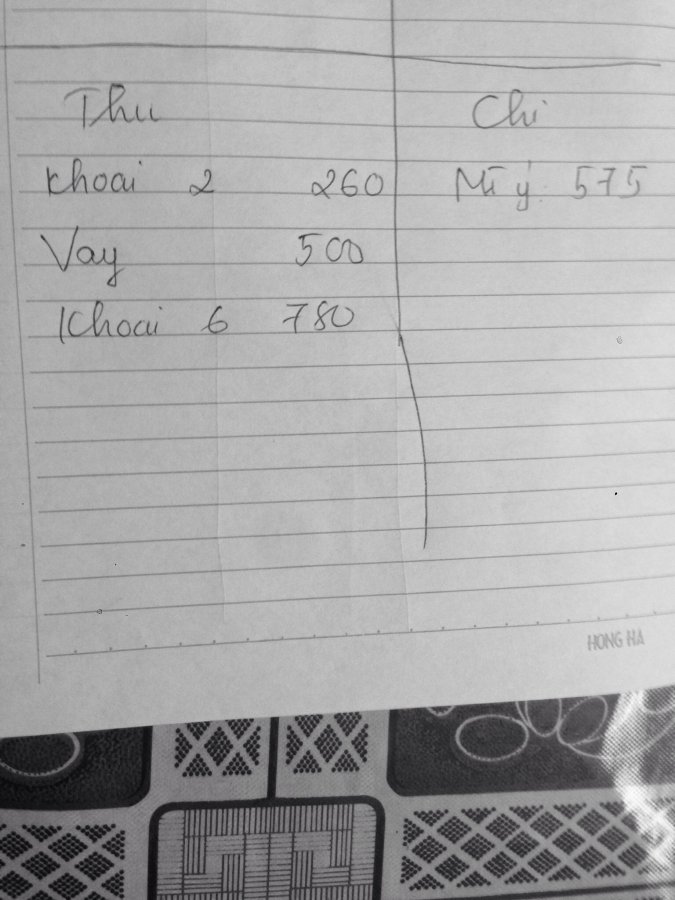 Thu Chi
Khoai 2 260 Mì ý 575
Vay 500
Khoai 6 780
HONG HA